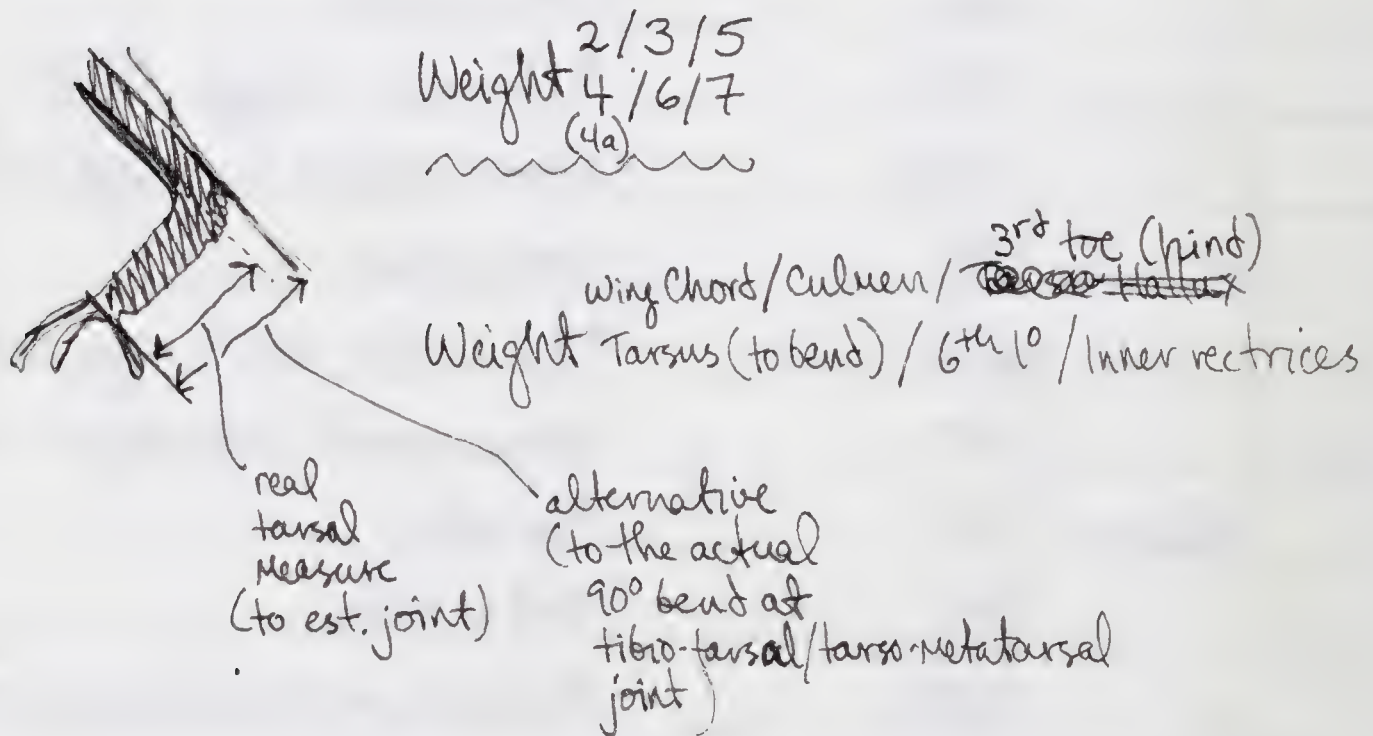 2/3/5
Weight 4/6/7
(4a)
3rd toe (hind)
wing Chord/Culmen/
Weight Tarsus (to bend) / 6th 1º / Inner rectrices
real
tarsal
measure
(to est. joint)
alternative
(to the actual
90º bend at
tibio-tarsal/tarso-metatarsal
joint)